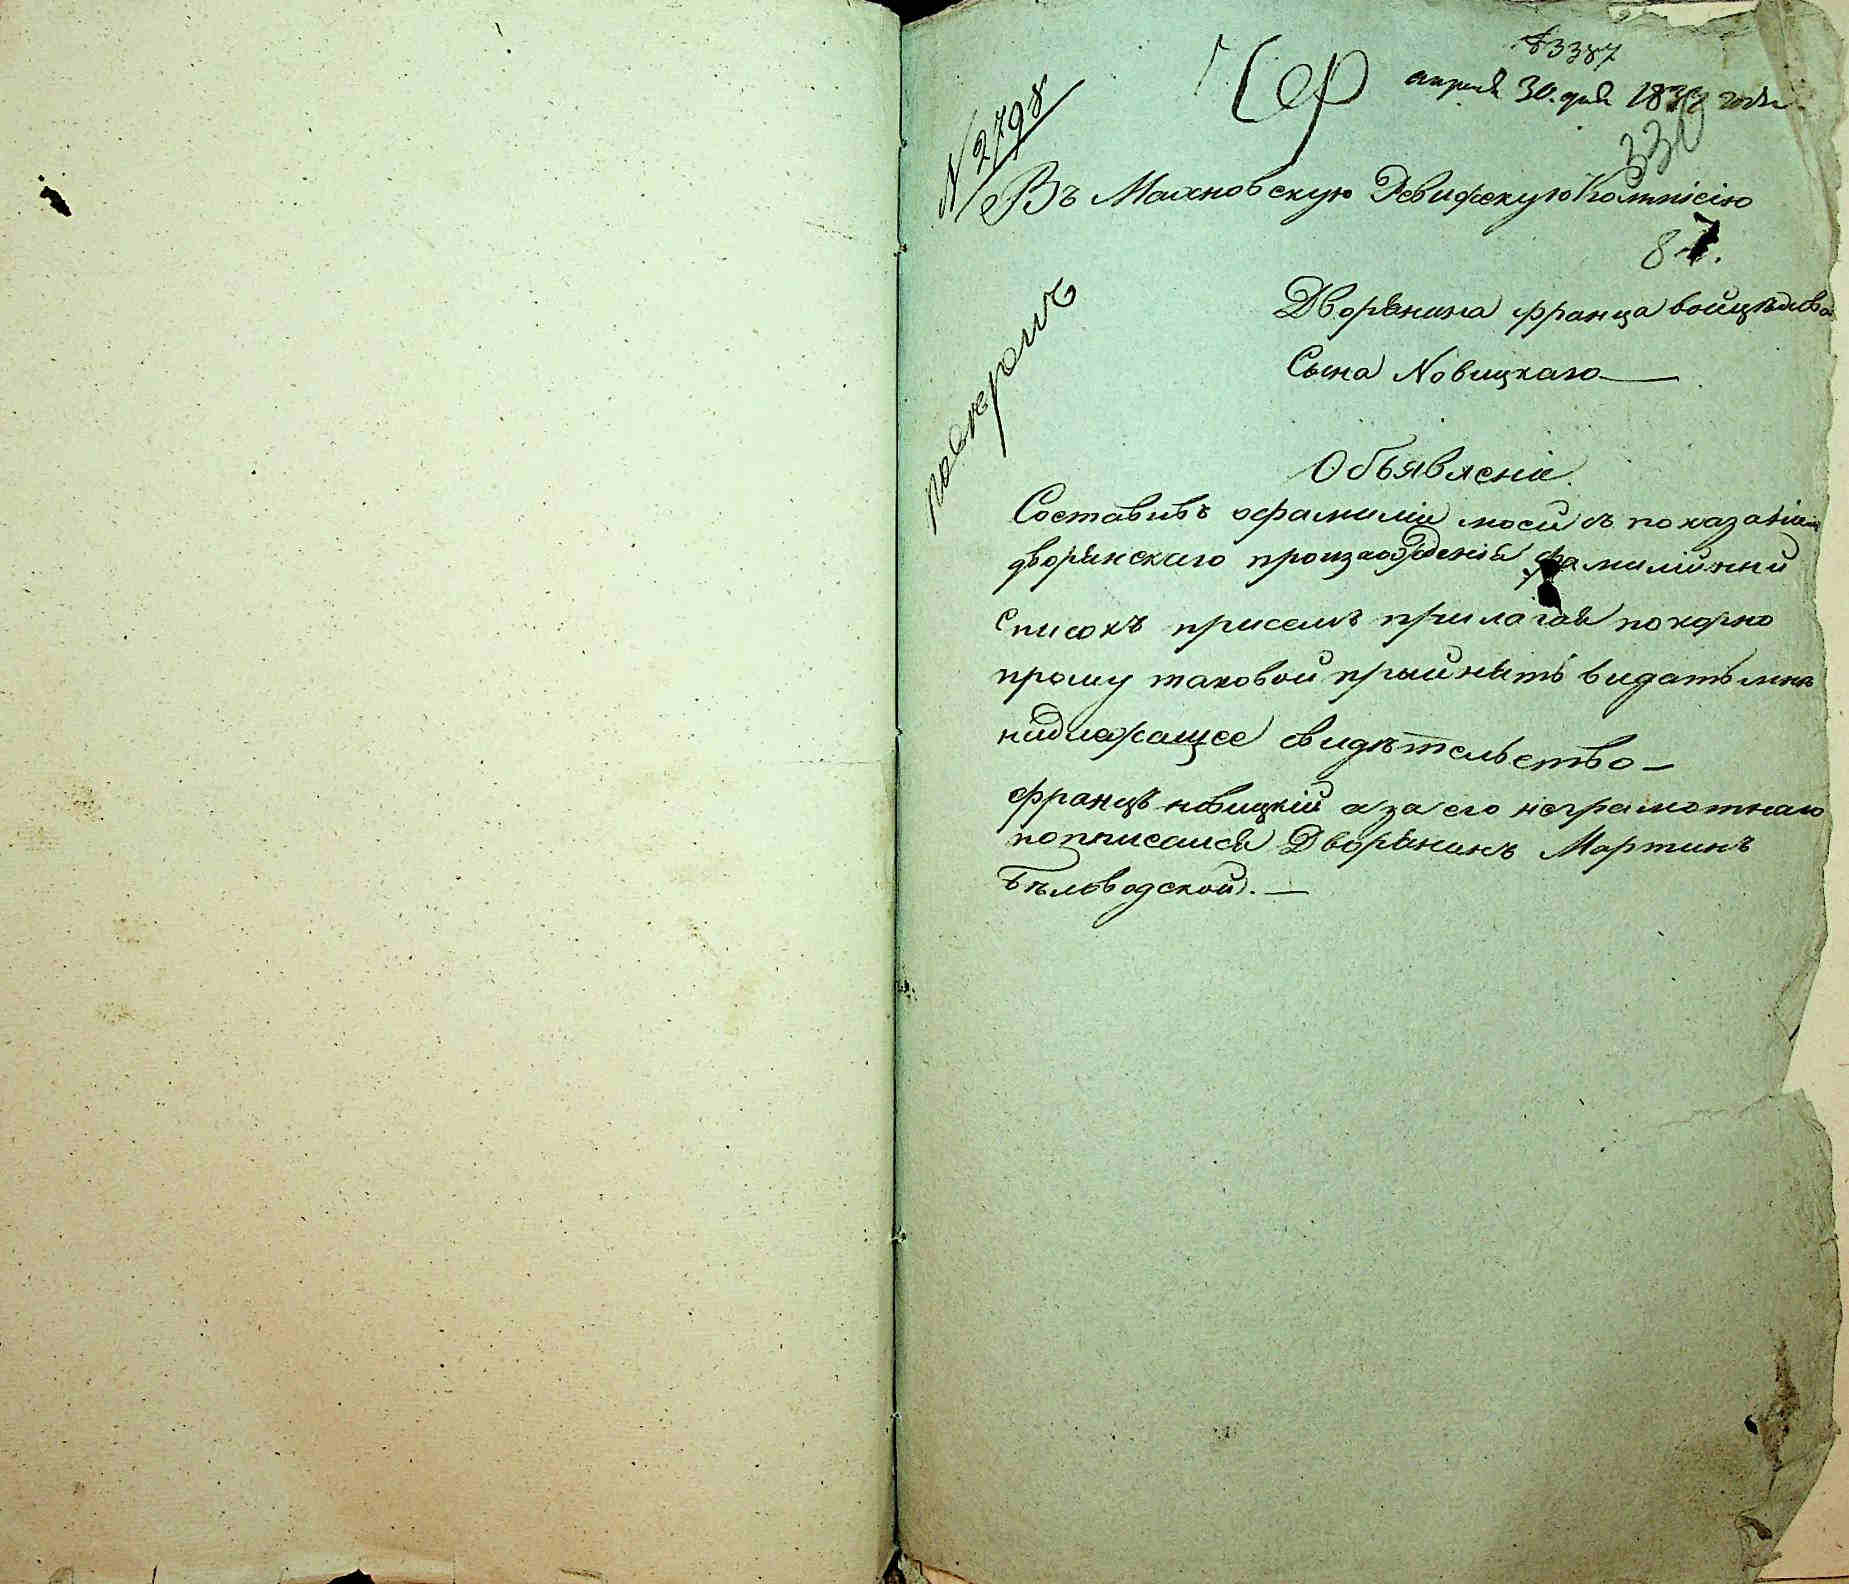 № 2798
апреля 30. дня 183 года
330
Въ Махновскую Ревизскую Коммісію
87.
Дворянина франца войцѣхова
Сына Новицкаго
Объявленіе.
Составивъ офамиліи моей съ показаніем
дворянскаго произхожденія фамилійний
списокъ присемъ прилагая покорно
прошу таковой прийнять видать мнѣ
надлежащее свидѣтельство
францъ новицкій а за его неграмотнаго
подписался Дворянинъ Мартинъ
Бѣловодской.